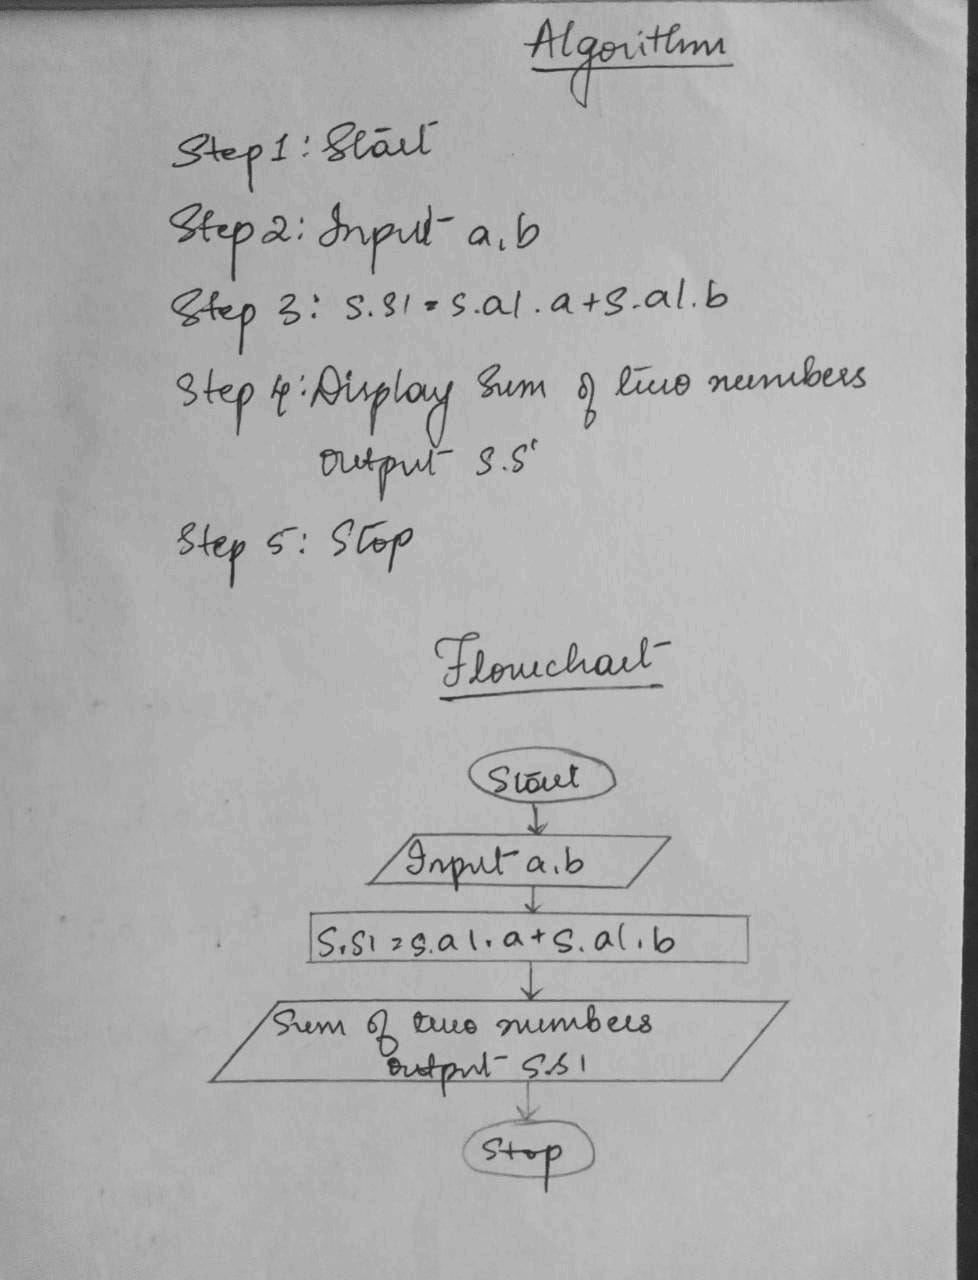 Algorithm
Step 1: Start
Step 2: Input a,b
Step 3: S.S1 = S.a1.a+S.a1.b
Step 4: Display Sum of two numbers
output S.S'
Step 5: Stop
Flowchart
Start
Input a,b
S.S1 = S.a1.a+S.a1.b
Sum of two numbers
output S.S1
Stop